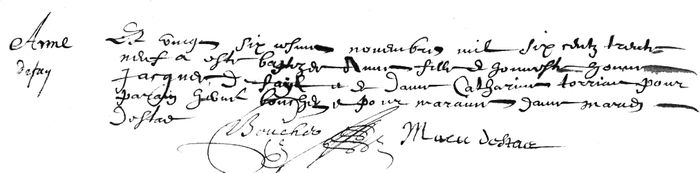 Anne
defay
Le vingt six iesme novembre mil six centz trente
neuf a esté baptizée Anne fille de honneste homme
Jacques de fayt et de dame Catharine torrian pour
parain henri bouchet et pour maraine dame marie
destae
Bouchet Marie destae